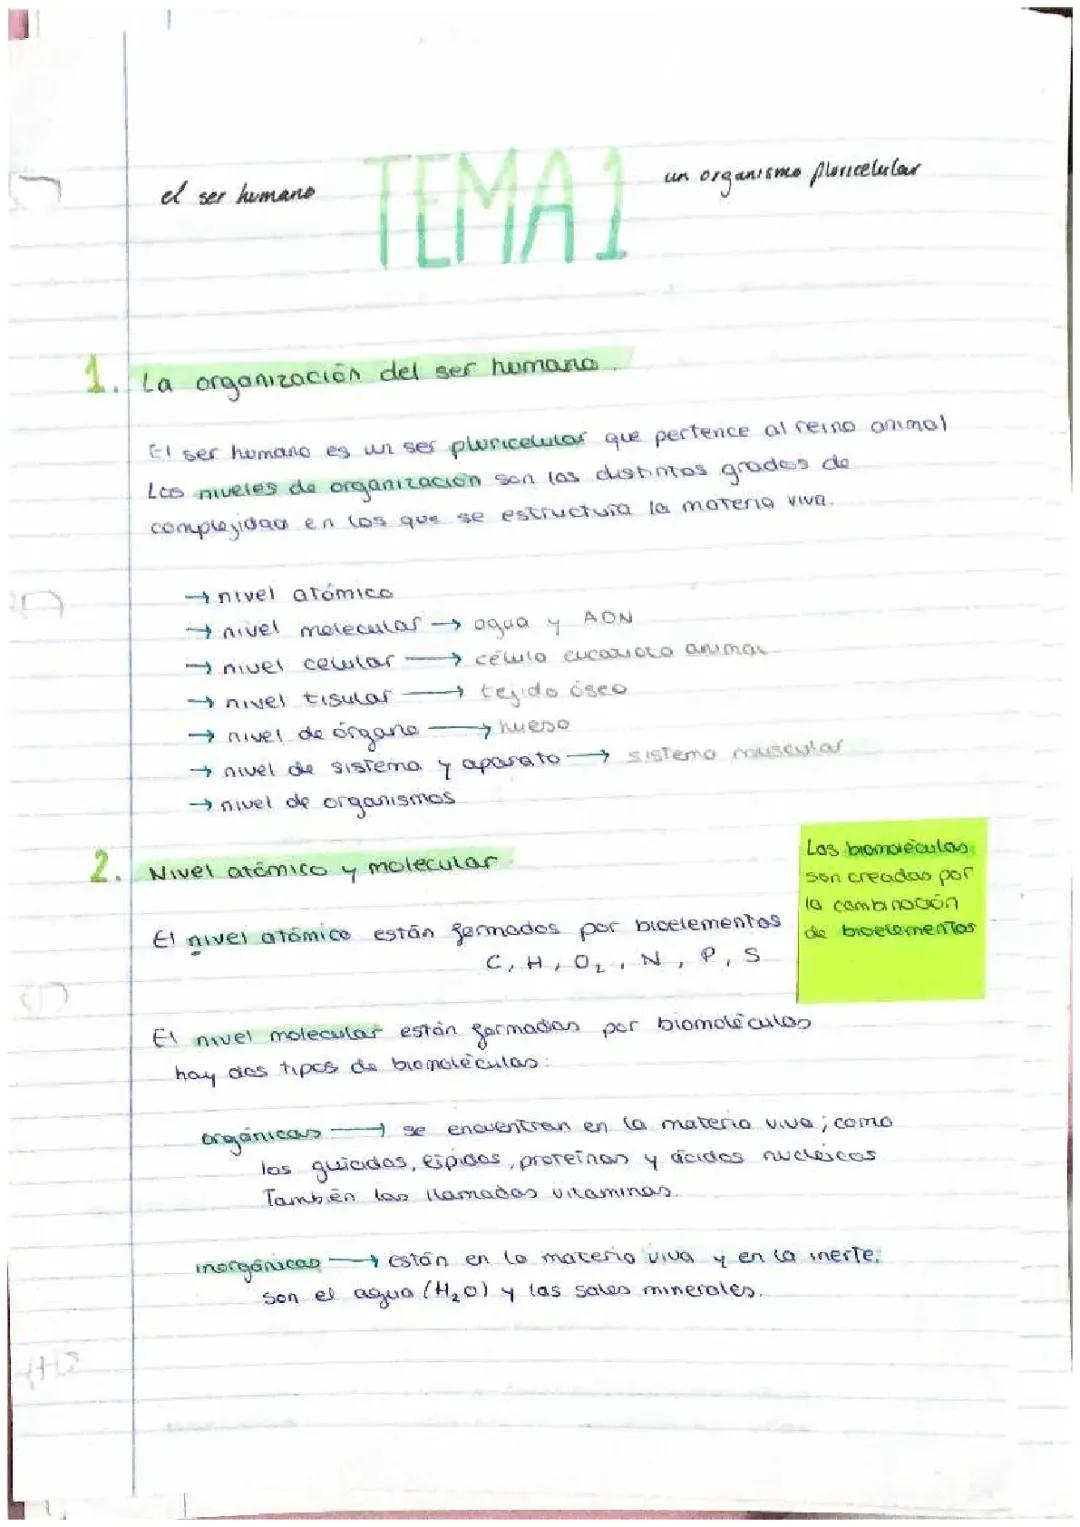 el ser humano
TEMA 1
un organismo pluricelular
1. La organización del ser humano.
El ser humano es un ser pluricelular que pertence al reino animal
Los niveles de organización son los distintos grados de
complejidad en los que se estructura la materia viva.
→ nivel atómico
→ nivel molecular → agua y ADN
→ nivel celular → célula eucariota animal
→ nivel tisular → tejido óseo
→ nivel de órgano → hueso
→ nivel de sistema y aparato → sistema muscular
→ nivel de organismos
2. Nivel atómico y molecular
Las biomoléculas
son creadas por
la combinación
de bioelementos
El nivel atómico están formados por bioelementos
C, H, O₂, N, P, S
El nivel molecular están formadas por biomoléculas
hay dos tipos de biomoléculas:
orgánicas → se encuentran en la materia viva; como
los glúcidos, lípidos, proteínas y ácidos nucleicos
También las llamadas vitaminas.
inorgánicas → están en la materia viva y en la inerte.
son el agua (H₂O) y las sales minerales.